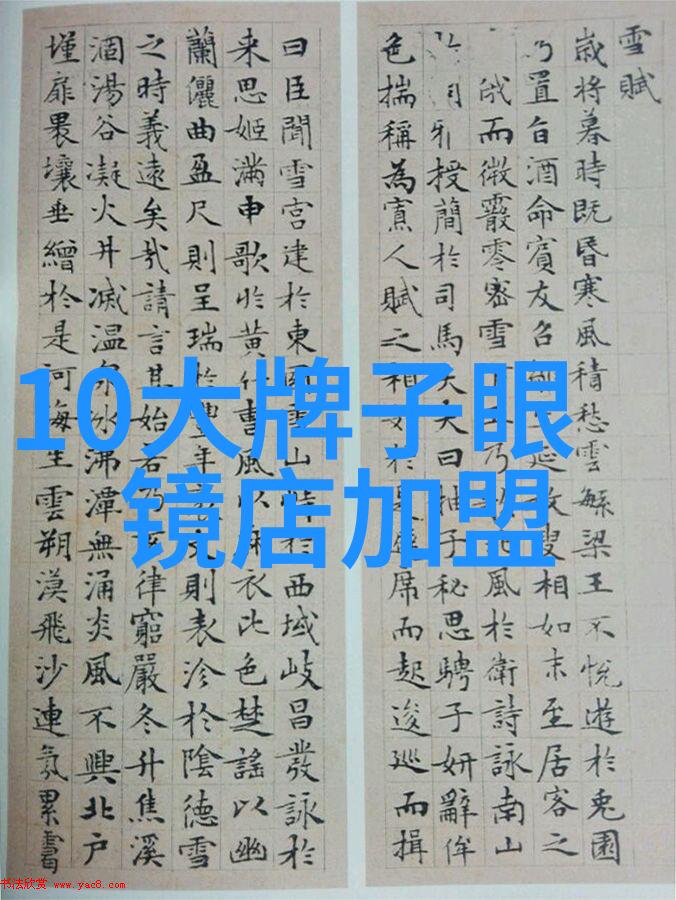 雪賦
歲將暮時既昏寒風積愁雲繁梁王不悅遊於兎園
乃置旨酒命賓友召延枚叟相如末至居客之
俄而微霰零密雪乃風於衛詩詠南山
雅授簡於司馬大夫曰抽子秘思騁子妍辭侔
色揣稱為寡人賦之相如於是避席而起逡巡而揖
曰臣聞雪宮建於東國雪山峙於西域岐昌發詠於
来思姬滿申歌於黃竹曹風以麻衣比色楚謠以幽
蘭儷曲盈尺則呈瑞於豐年袤丈則表沴於陰德雪
之時義遠矣哉請言其始若乃玄律窮嚴冬升焦溪
涸湯谷凝火井滅温泉冰沸潭無涌炎風不興北户
墐扉壤垂繒於是河海生雲朔漠飛沙連氛累靄
10大牌子眼
镜店加盟
书法欣赏 www.yac8.com